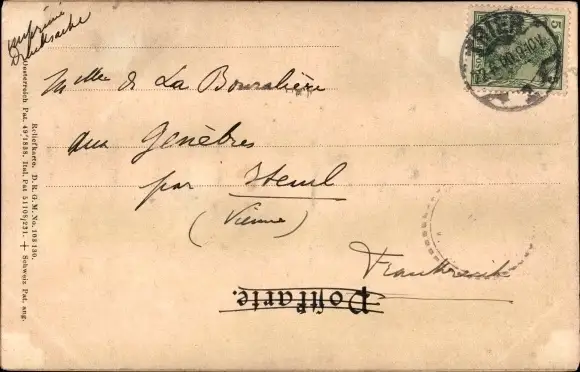 imprimé
Drucksache
TRIER
5
Mlle de La Bouralière
aux Genèbres
par
(Vienne)
Frankreich
Postkarte.
Reliefkarte. D. R. G. M. No. 108130.
Oesterreich Pat. 49/1838. Ital. Pat 51108/221. + Schweiz Pat. ang.